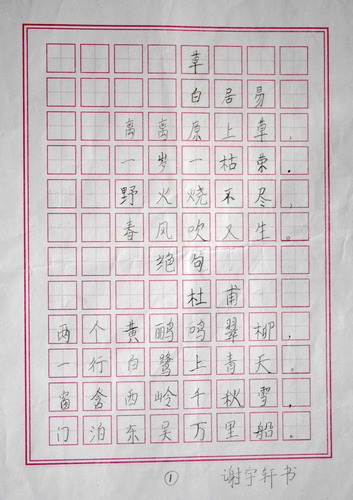 草
白居易
离离原上草，
一岁一枯荣。
野火烧不尽，
春风吹又生。
绝句
杜甫
两个黄鹂鸣翠柳，
一行白鹭上青天。
窗含西岭千秋雪，
门泊东吴万里船。
①
谢宇轩书